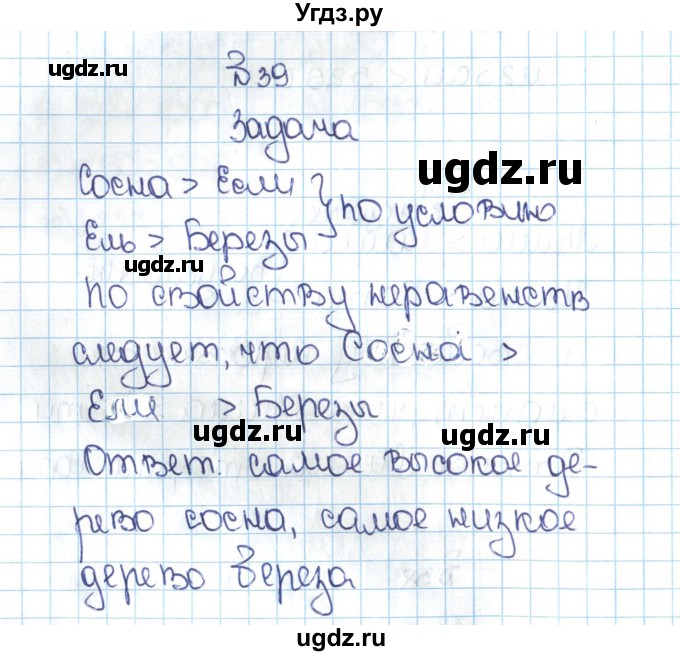 Угдз.ру
ugdz.ru
В 39
Задача
ugdz.ru
Сосна > Ели } по условию
Ель > Березы
ugdz.ru
по свойству неравенств
следует, что Сосна >
Ели > Березы
ugdz.ru ugdz.ru
Ответ: самое высокое де-
рево сосна, самое низкое
дерево береза
ugdz.ru